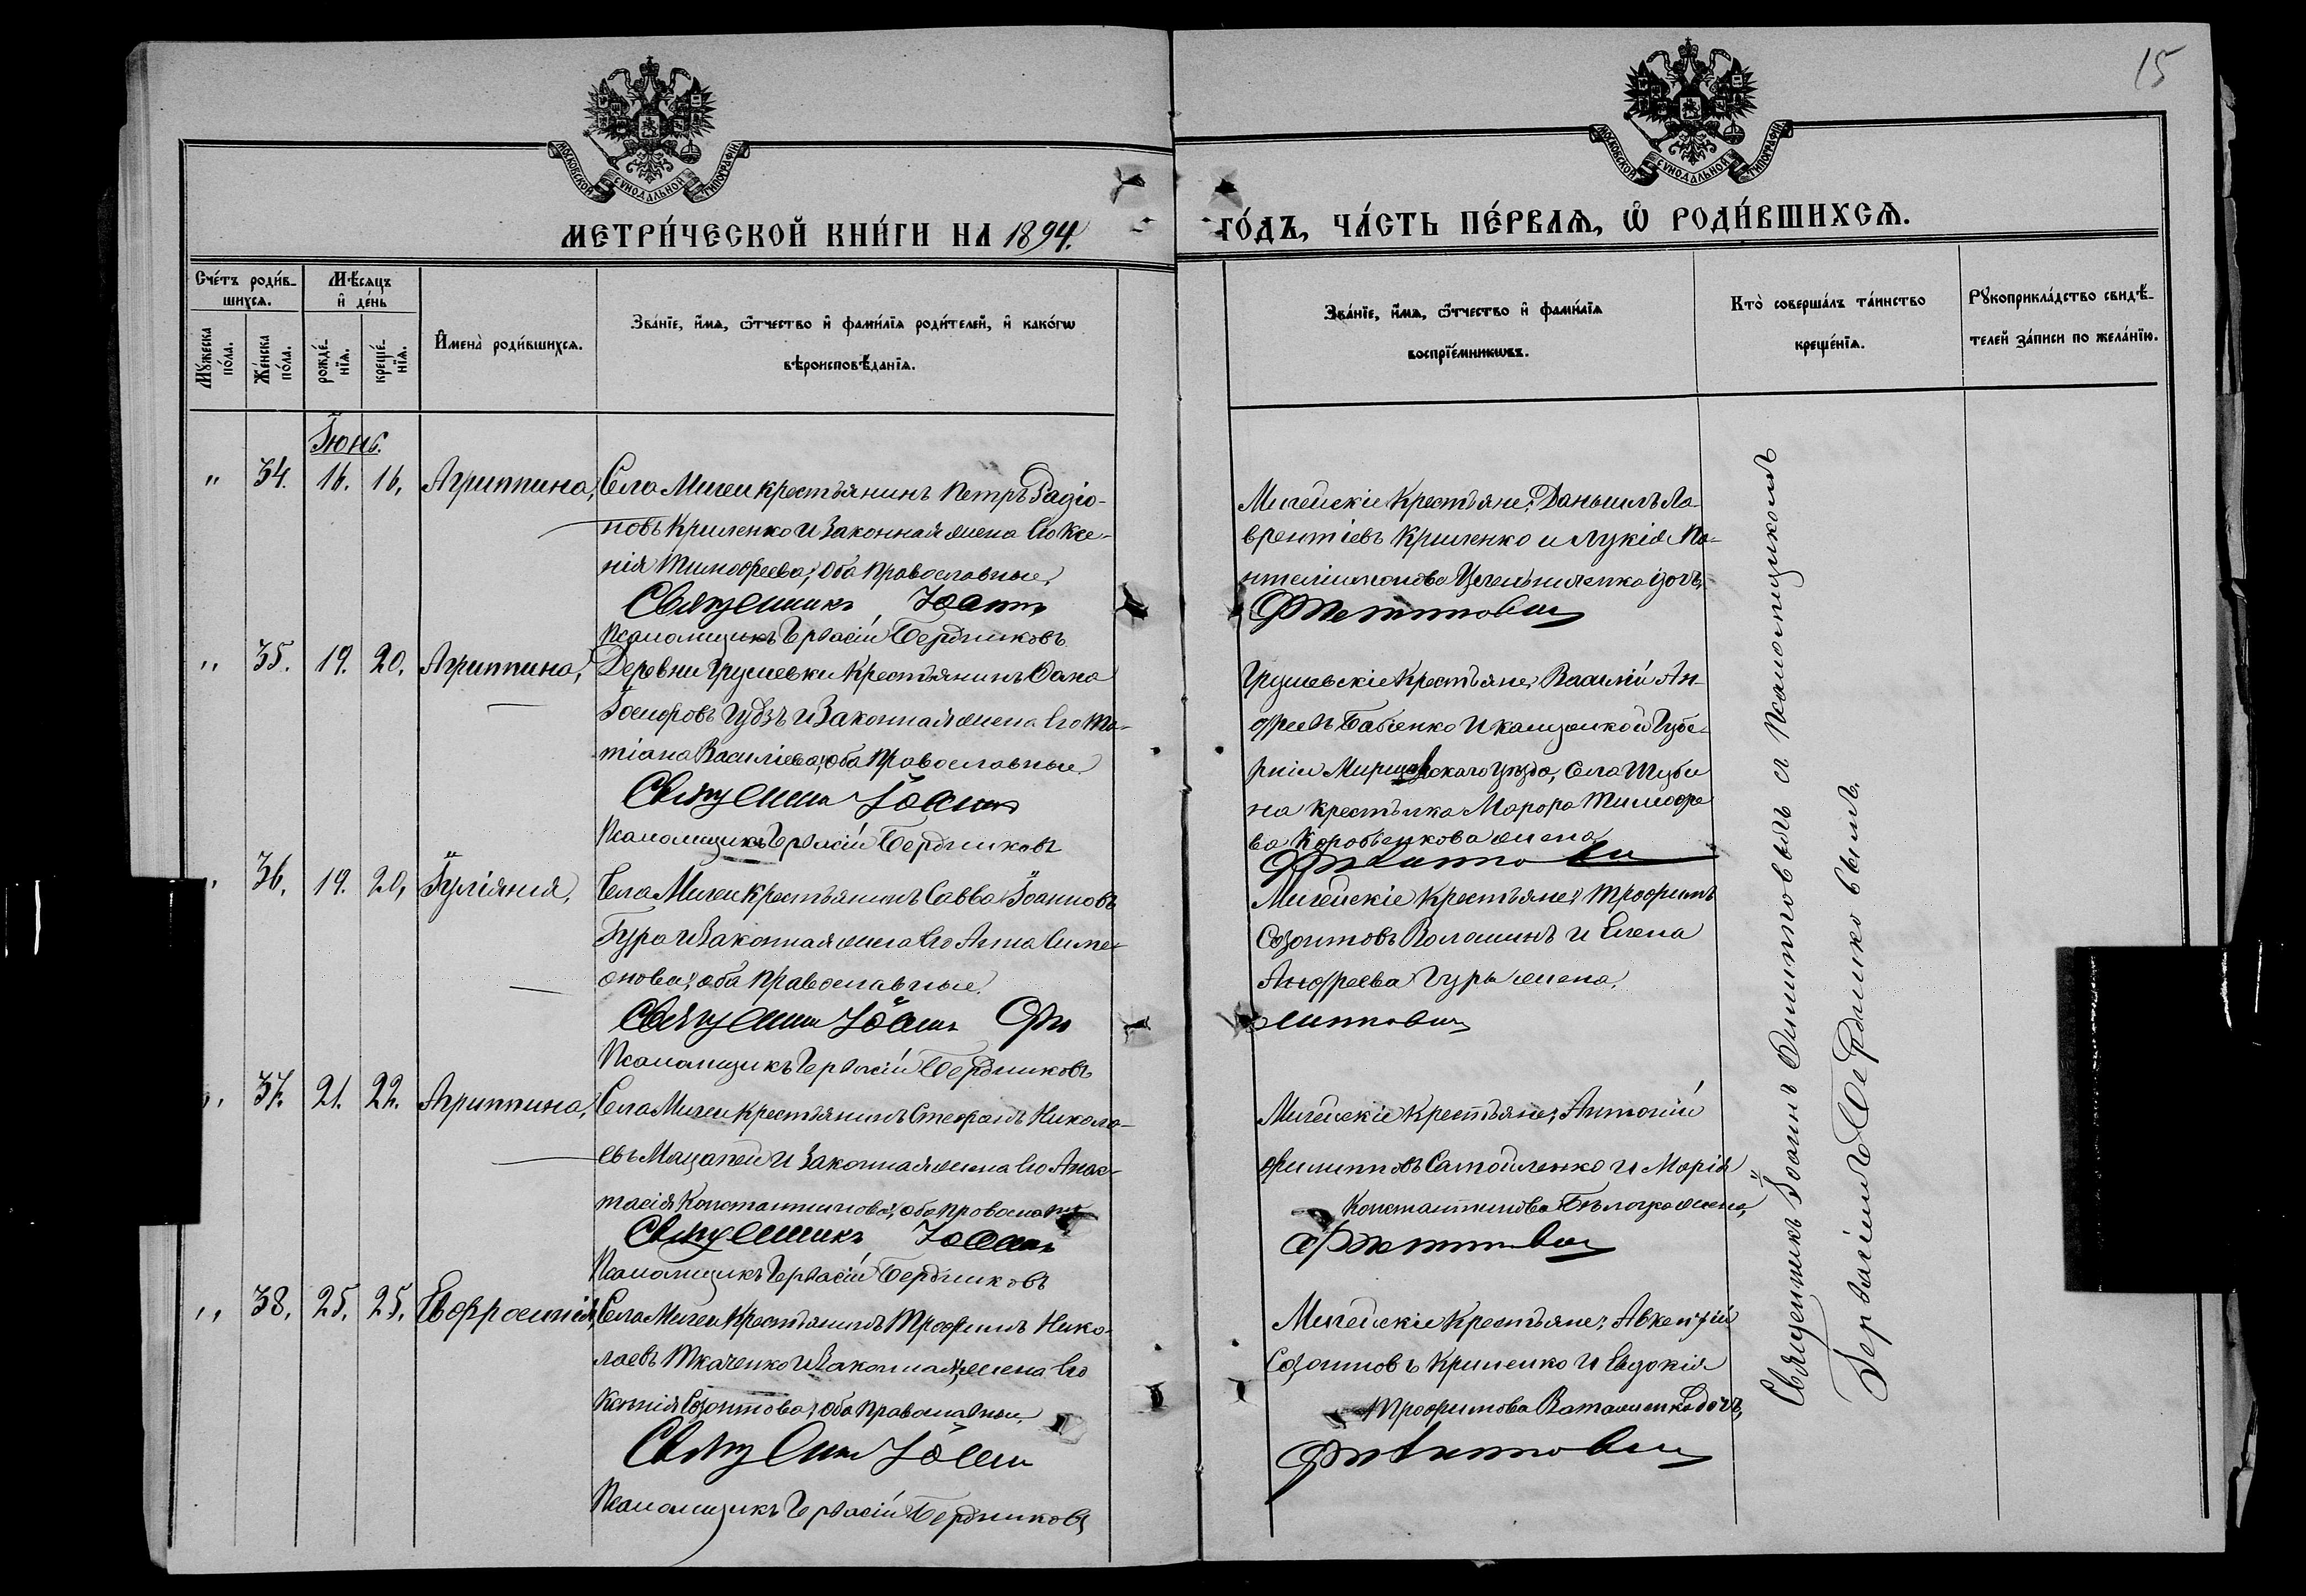 15
МОСКОВСКОЙ СУНОДАЛЬНОЙ ТИПОГРАФІИ
МОСКОВСКОЙ СУНОДАЛЬНОЙ ТИПОГРАФІИ
МЕТРИ́ЧЕСКОЙ КНИ́ГИ НА 1894.
ГО́ДЪ, ЧА́СТЬ ПЕ́РВАѦ, Ѡ҆ РОДИ́ВШИХСѦ.
Сче́тъ роди́в-
шихсѧ.
Мꙋ́жеска
по́ла.
Же́нска
по́ла.
Мѣ́сѧцъ
и҆ де́нь
рожде́-
нїѧ.
креще́-
нїѧ.
И҆мена̀ роди́вшихсѧ.
Зва́нїе, и҆́мѧ, ѻ҆́тчество и҆ фами́лїѧ роди́телей, и҆ како́гѡ
вѣроисповѣ́данїѧ.
Зва́нїе, и҆́мѧ, ѻ҆́тчество и҆ фами́лїѧ
воспрїе́мникѡвъ.
Кто̀ соверша́лъ та́инство
креще́нїѧ.
Рꙋкоприкла́дство свидѣ́-
телей за́писи по жела́нїю.
Іюнь.
" 34. 16. 16. Агриппина, Села Мигеи крестьянинъ Петръ Радіо-
новъ Криленко и законная жена его Ксе-
нія Тимофеева, оба православные.
Священникъ Іоаннъ
Псаломщикъ Гервасій Бердниковъ
Мигейскіе крестьяне: Даніилъ Ла-
врентіевъ Криленко и Лукія Па-
нтелимонова дочь,
Филипповичъ
" 35. 19. 20. Агриппина, Деревни Грушевки крестьянинъ Фока
Іосифовъ Гудзъ и законная жена его Та-
тіана Василіева, оба православные.
Священникъ Іоаннъ
Псаломщикъ Гервасій Бердниковъ
Грушевскіе крестьяне, Василій Ан-
дреевъ Бабіенко и Губе-
рніи уѣзда, села Шуби
на крестьянка Тимофее
ва Коробченкова жена
Филипповичъ
" 36. 19. 20. Іуліанія, Села Мигеи крестьянинъ Савва Іоанновъ
Гура и законная жена его Анна Симе-
онова, оба православные.
Священникъ Іоаннъ Фи
Псаломщикъ Гервасій Бердниковъ
Мигейскіе крестьяне: Трофимъ
Созонтовъ Волошинъ и Елена
Андреева Гуры жена.
липповичъ
" 37. 21. 22. Агриппина, Села Мигеи крестьянинъ Стефанъ Никола-
евъ Мацапей и законная жена его Анас-
тасія Константинова, оба православные
Священникъ Іоаннъ
Псаломщикъ Гервасій Бердниковъ
Мигейскіе крестьяне, Антоній
Филипповъ Самойленко и Марія
Константинова жена,
Филипповичъ
" 38. 25. 25. Евфросинія, Села Мигеи крестьянинъ Трофимъ Нико-
лаевъ Ткаченко и законная жена его
Ксенія Созонтова, оба православные.
Священникъ Іоаннъ
Псаломщикъ Гервасій Бердниковъ
Мигейскіе крестьяне: Авксентій
Созонтовъ Криленко и Евдокія
Трофимова Ваташенко дочь,
Филипповичъ
Священникъ Іоаннъ Филипповичъ съ псаломщикомъ
Гервасіемъ Бердниковымъ.